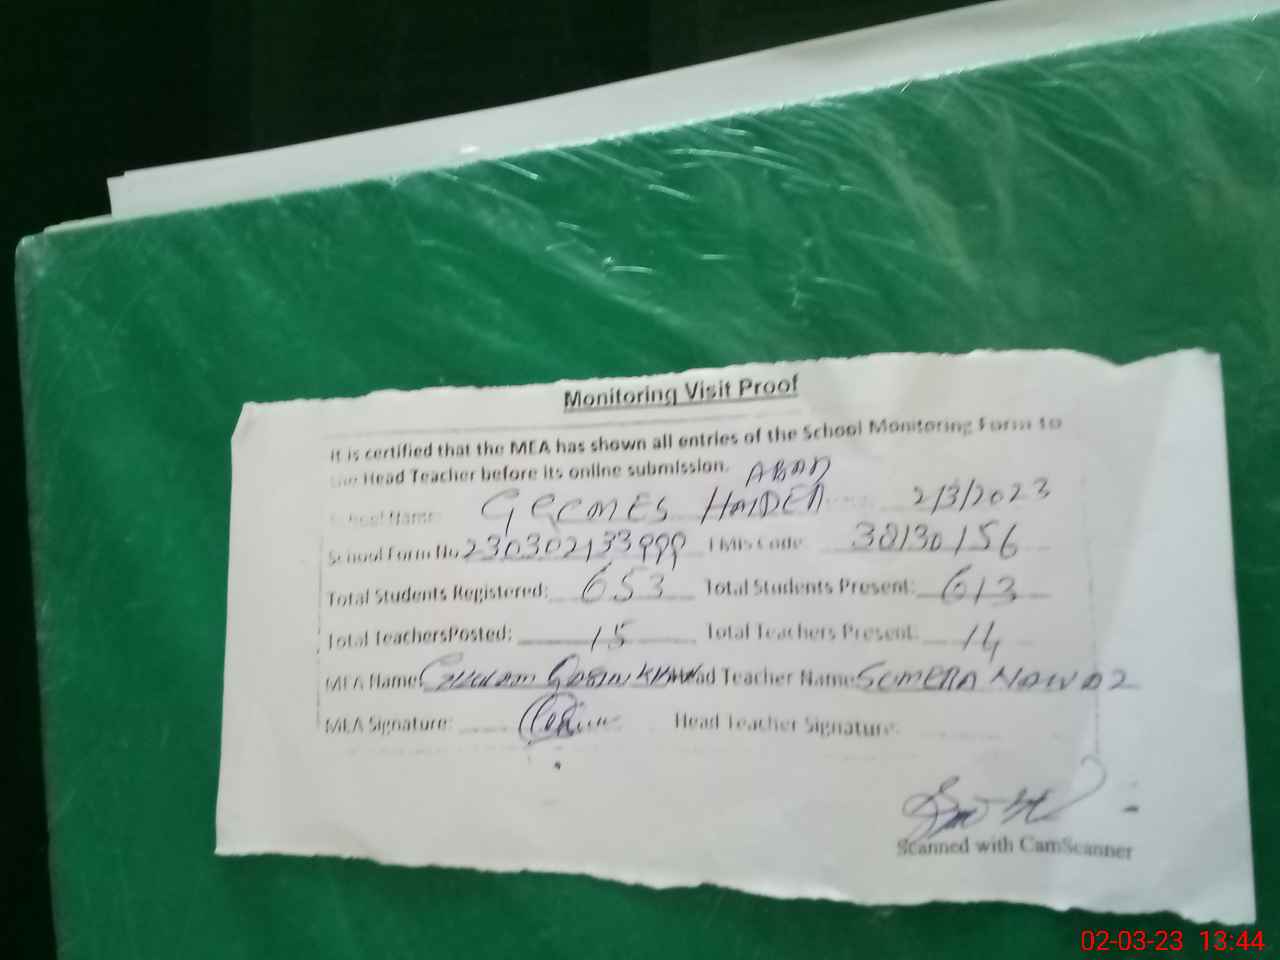 Monitoring Visit Proof
It is certified that the MEA has shown all entries of the School Monitoring Form to
the Head Teacher before its online submission.
ABAD
School Name: GGCMES HAIDER 2/3/2023
School Form No 230302133999 EMIS Code: 38130156
Total Students Registered: 653 Total Students Present: 613
Total TeachersPosted: 15 Total Teachers Present: 14
MEA Name: KHAN Head Teacher Name: SUMERA NAWAZ
MEA Signature: Head Teacher Signature:
Scanned with CamScanner
02-03-23 13:44